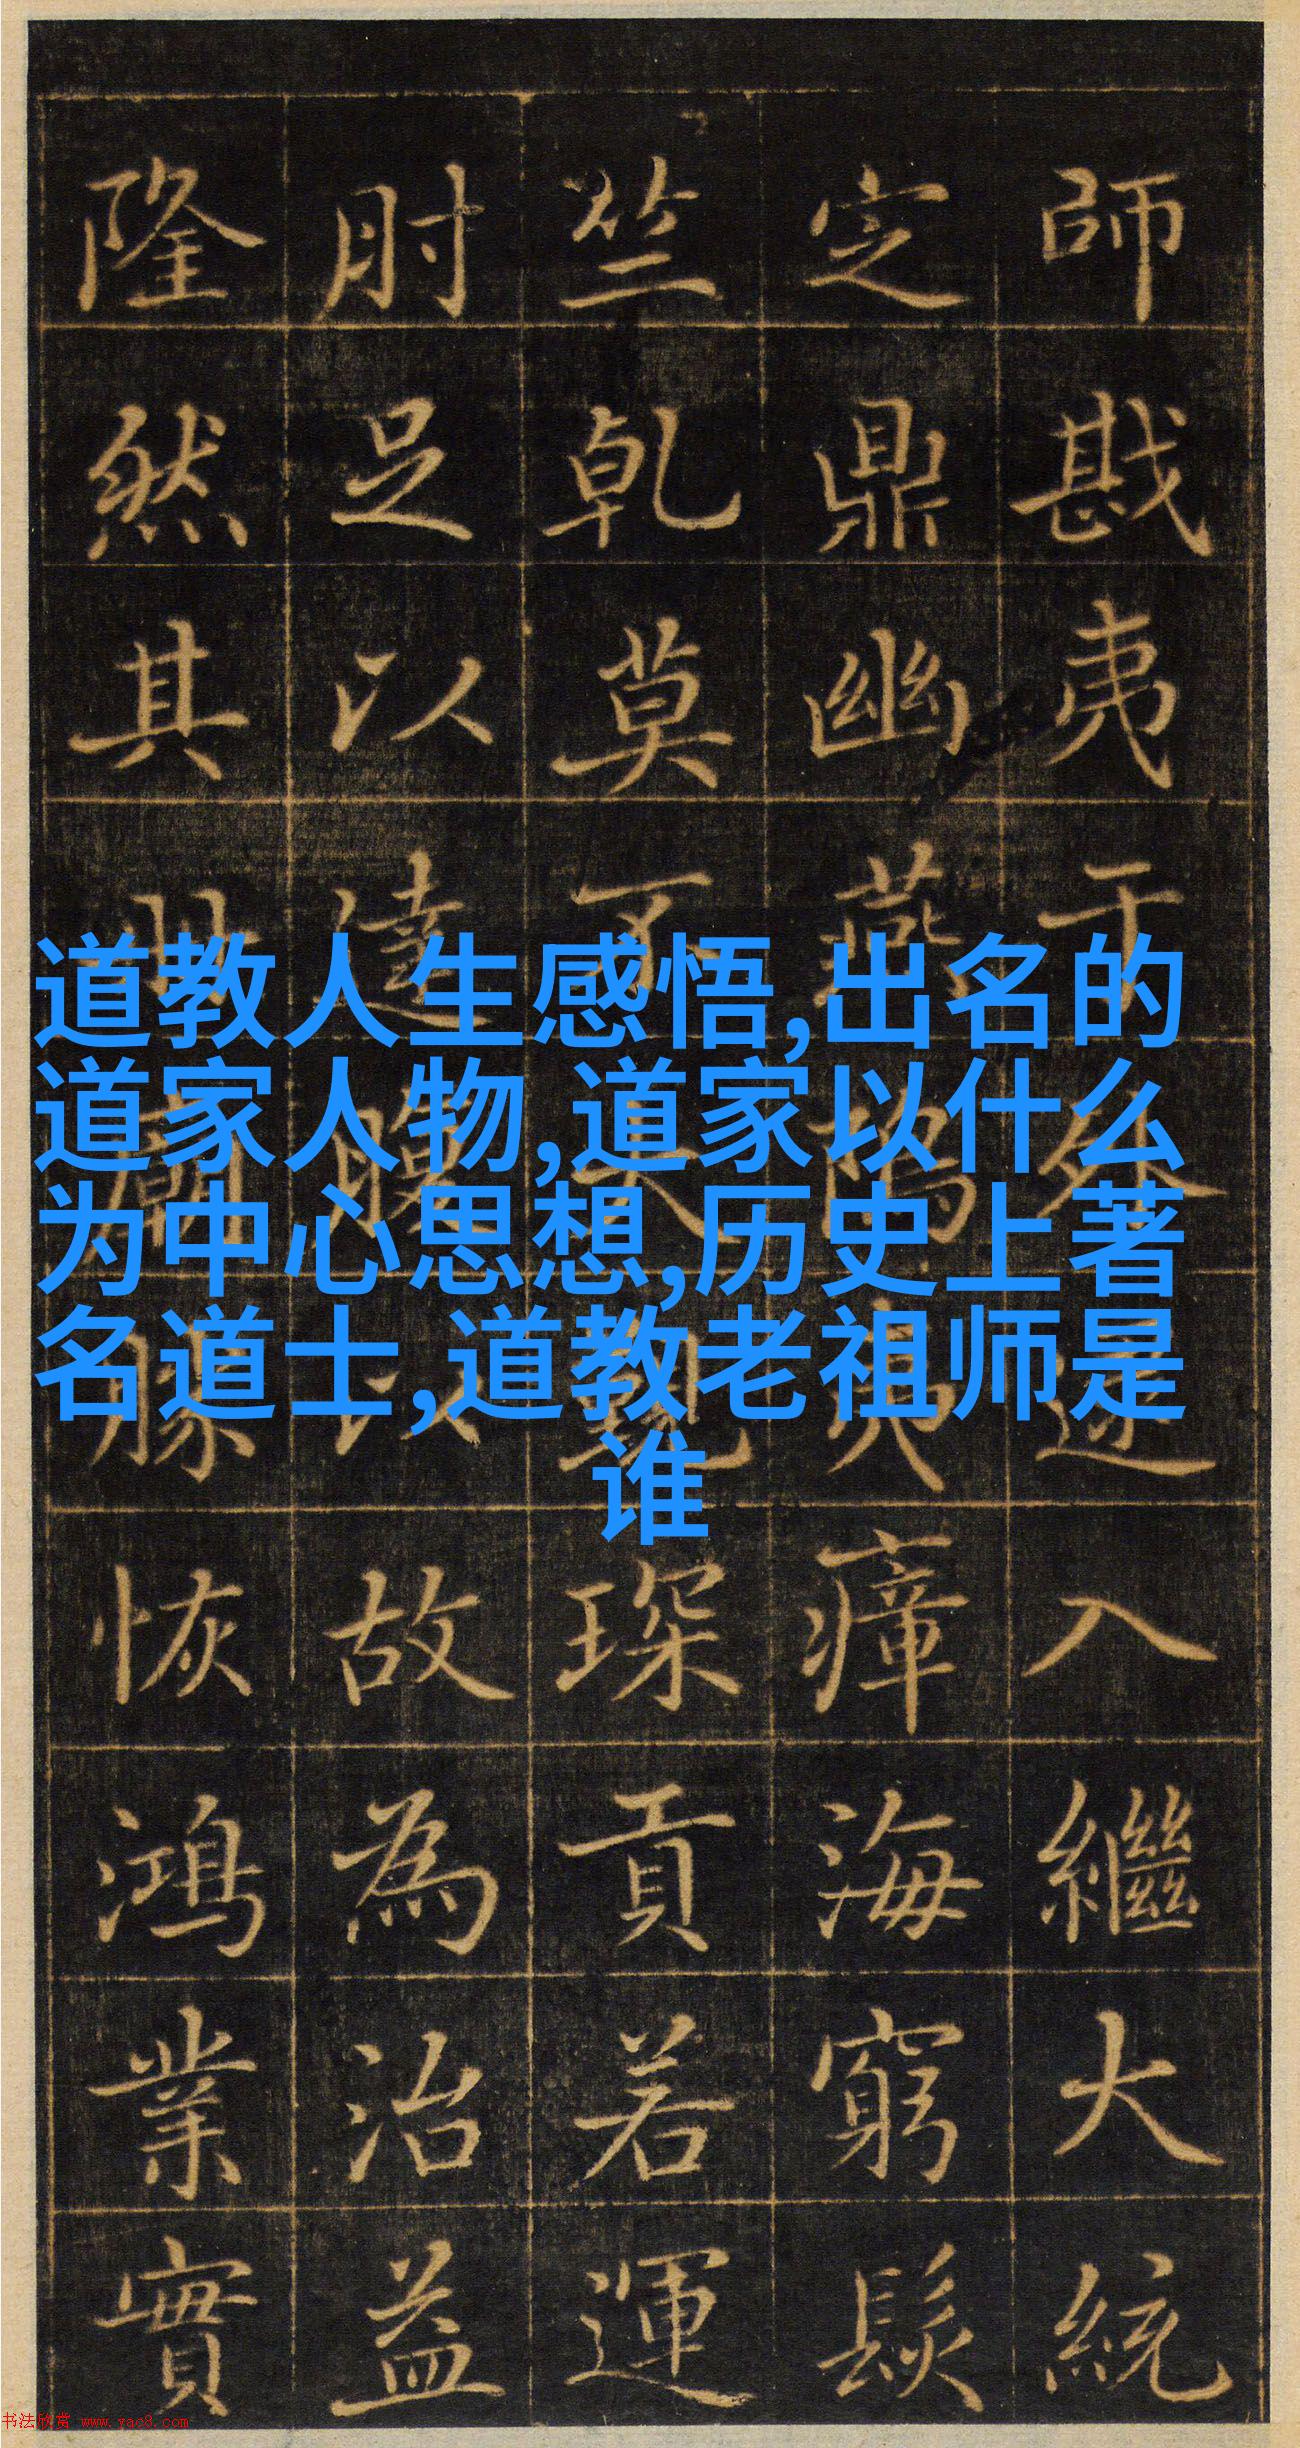 道教人生感悟,出名的
道家人物,道家以什么
为中心思想,历史上著
名道士,道教老祖师是
谁
師戡夷于入繼大統
定鼎幽燕夷瘴海窮髮
竺乾莫不琛貢若運
肘足以達腹以故為治益
隆然其廟恢鴻業實
书法欣赏 www.yac8.com